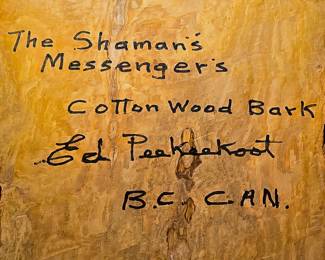 The Shaman's
Messenger's
Cotton Wood Bark
Ed Peekeekoot
B.C. CAN.